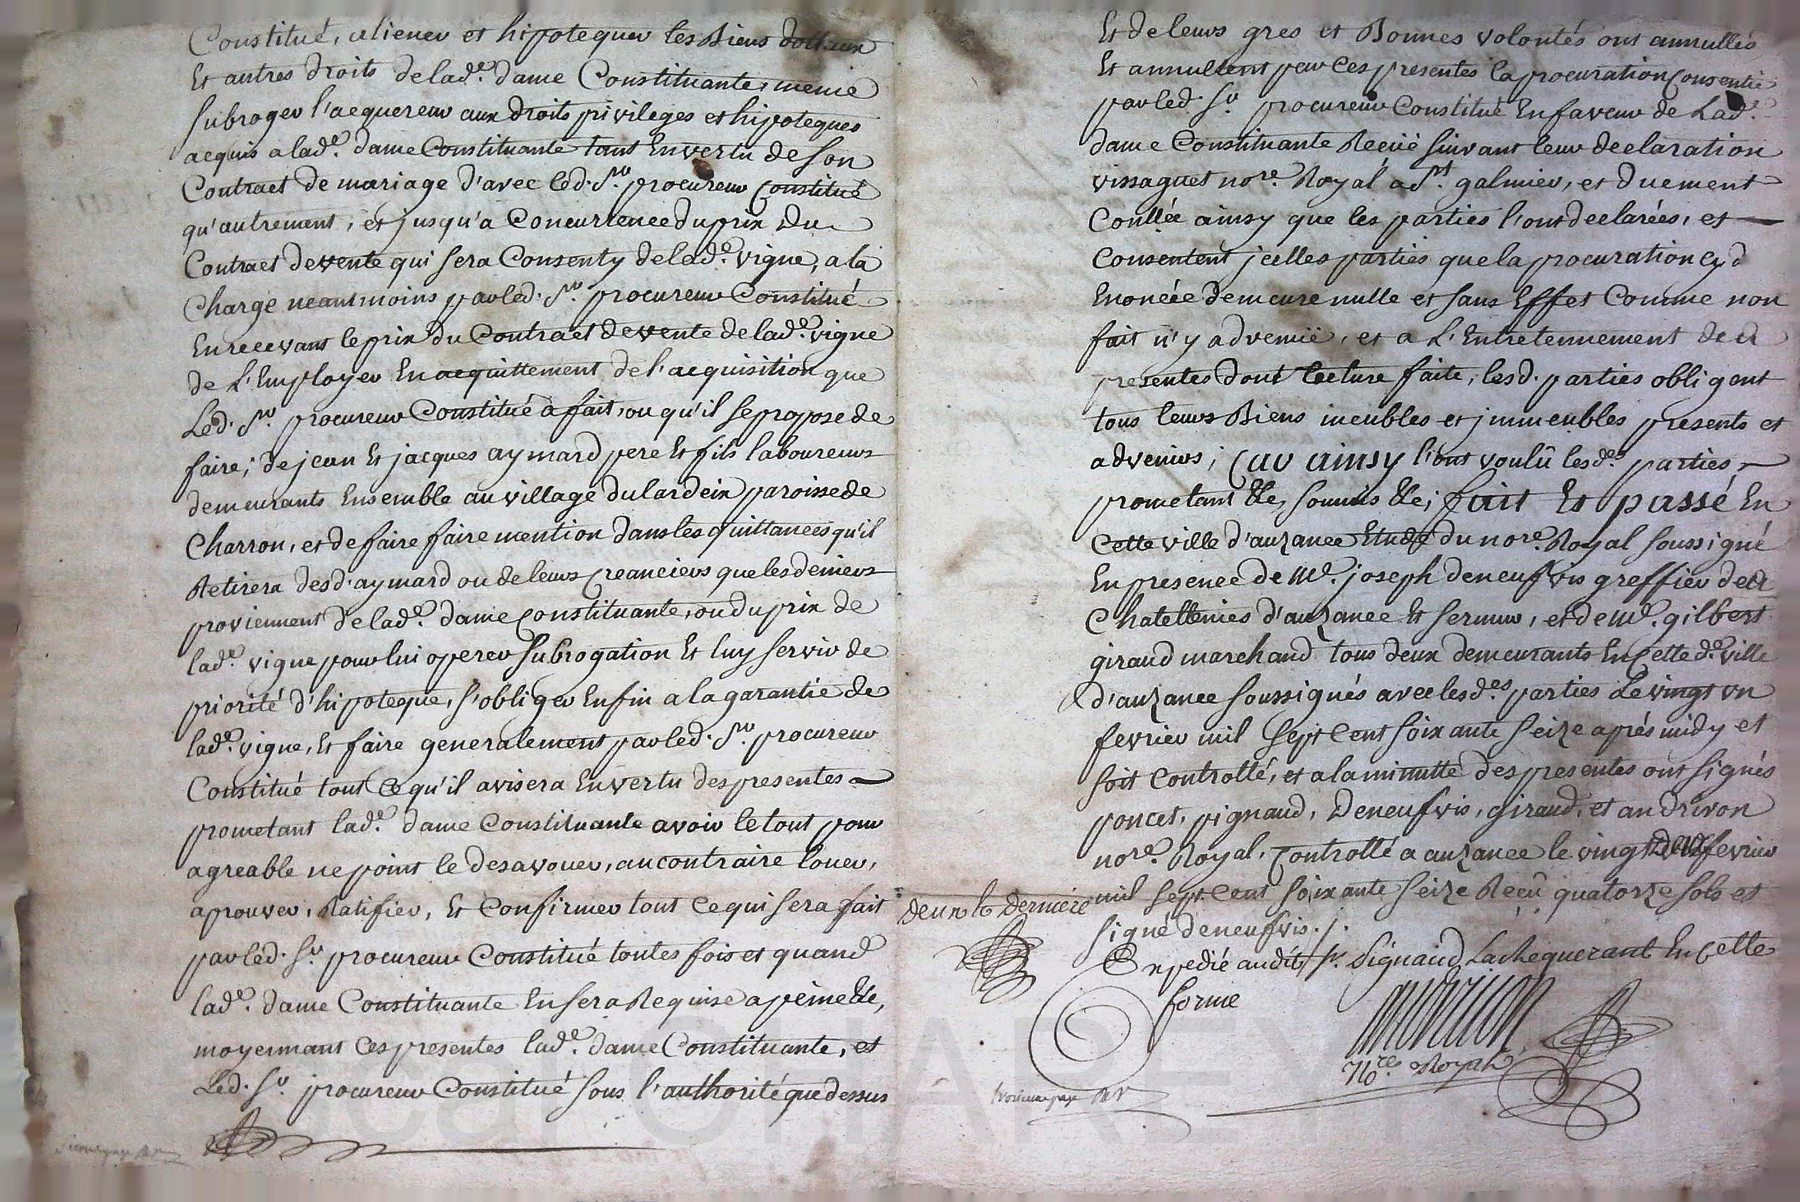 Constitué, aliener et hipotequer les Biens dottaux
Et autres droits de lad.e dame Constituante, meme
subroger l'acquereur aux droits privileges et hipoteques
acquis a lad.e dame Constituante tant En vertu de son
Contract de mariage d'avec led. Sr. procureur Constitué
qu'autrement, et jusqu'a Concurrence du prix du
Contract de vente qui sera Consenty de lad.e vigne, a la
Charge neantmoins par led. Sr. procureur Constitué
En recevant le prix du Contract de vente de lad.e vigne
de L'Employer En acquittement de l'acquisition que
Led. Sr. procureur Constitué a fait, ou qu'il se propose de
faire; de jean Et jacques aymard pere Et fils laboureurs
demeurants Ensemble au village du lardeix paroisse de
Charron, et de faire faire mention dans les quittances qu'il
Retirera desd. aymard ou de leurs Creanciers que les deniers
proviennent de lad.e dame Constituante, ou du prix de
lad.e vigne pour lui operer subrogation Et luy servir de
priorité d'hipoteque, s'obliger Enfin a la garantie de
lad.e vigne, Et faire generalement par led. Sr. procureur
Constitué tout ce qu'il avisera En vertu des presentes
prometant lad.e dame Constituante avoir le tout pour
agreable ne point le desavouer, au contraire louer,
aprouver, Ratifier, Et Confirmer tout ce qui sera fait
par led. Sr. procureur Constitué toutes fois et quand
lad.e dame Constituante En sera Requise a peine &c,
moyennant ces presentes lad.e dame Constituante, et
Led. Sr. procureur Constitué sous l'authorité que dessus
Et de leurs gres et Bonnes volontés ont annullés
Et annullent par ces presentes la procuration Consentie
par led. Sr. procureur Constitué En faveur de Lad.e
dame Constituante Recüe suivant leur declaration
vissaguet nore. Royal a St. galmier, et duement
Conllée ainsy que les parties l'ont declarées, et
Consentent jcelles parties que la procuration cyd
Enoncée demeure nulle et sans Effet Comme non
fait n'y advenüe, et a L'Entretennement de
presentes dont lecture faite, lesd. parties obligent
tous leurs Biens meubles et jmmeubles presents et
advenirs; Car ainsy l'ont voulû lesd.es parties
prometant &c, soumis &c; fait Et passé En
Cette ville d'auzance Etude du nore. Royal soussigné
En presence de Me. joseph deneufvis greffier de
Chatellenies d'auzance Et sermur, et de Me. gilbert
giraud marchand tous deux demeurants En Cette d.e ville
d'auzance soussignés avec lesd.es parties Le vingt un
fevrier mil sept Cent soixante seize aprés midy et
soit Controllé, et a la minutte des presentes ont signés
poncet, pignaud, Deneufvis, giraud, et andrivon
nore. Royal, Controllé a auzance le vingt deux fevrier
mil sept Cent soixante seize Reçû quatorze sols et
signé deneufvis.
Expedié audit Sr. Pignaud Lache Requerant En cette
forme
Nre. Royal